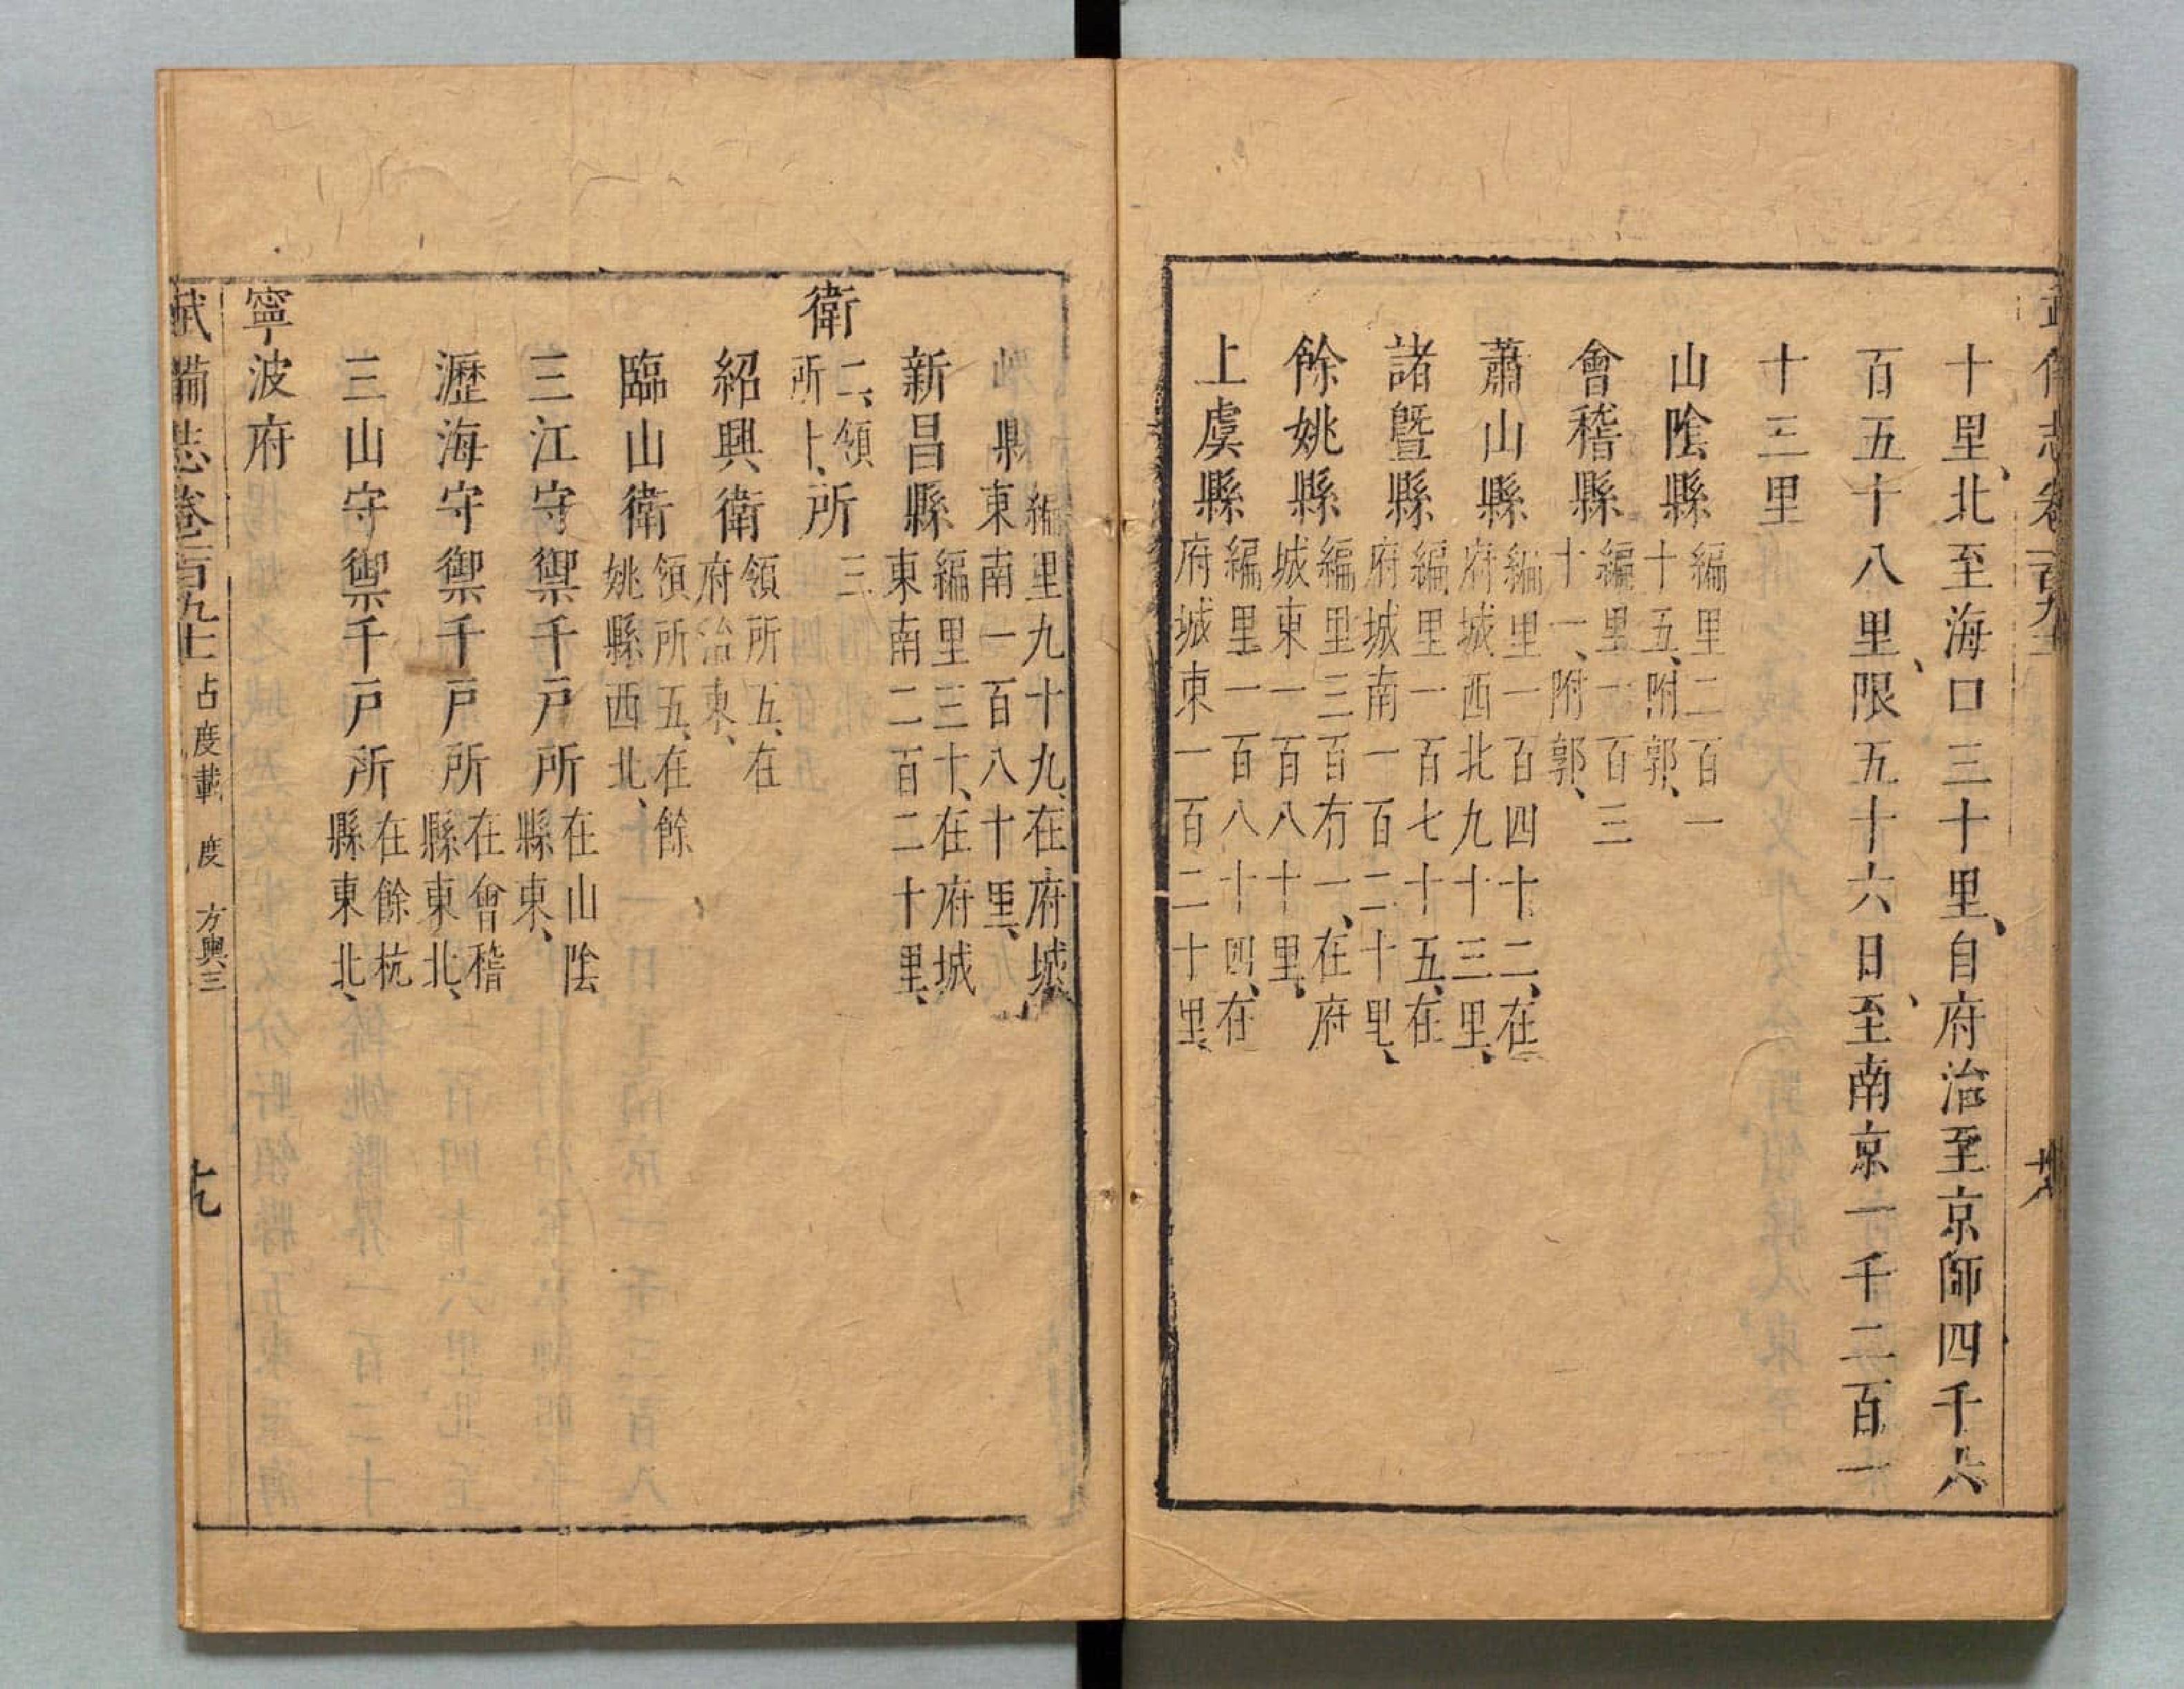 十里、北至海口三十里、自府治至京師四千六
百五十八里、限五十六日、至南京一千二百一
十三里
山陰縣 編里二百一
十五、附郭、
會稽縣 編里一百三
十一、附郭、
蕭山縣 編里一百四十二、在
府城西北九十三里、
諸曁縣 編里一百七十五、在
府城南一百二十里、
餘姚縣 編里三百有一、在府
城東一百八十里、
上虞縣 編里一百八十四、在
府城東一百二十里、
縣 編里九十九、在府城
東南一百八十里、
新昌縣 編里三十、在府城
東南二百二十里、
衛 二、領
所 所 三
紹興衛 領所五、在
府治東、
臨山衛 領所五、在餘
姚縣西北、
三江守禦千戸所 在山陰
縣東、
瀝海守禦千戸所 在會稽
縣東北、
三山守禦千戸所 在餘杭
縣東北、
寧波府
武備志卷一百九十 占度載 度 方輿三